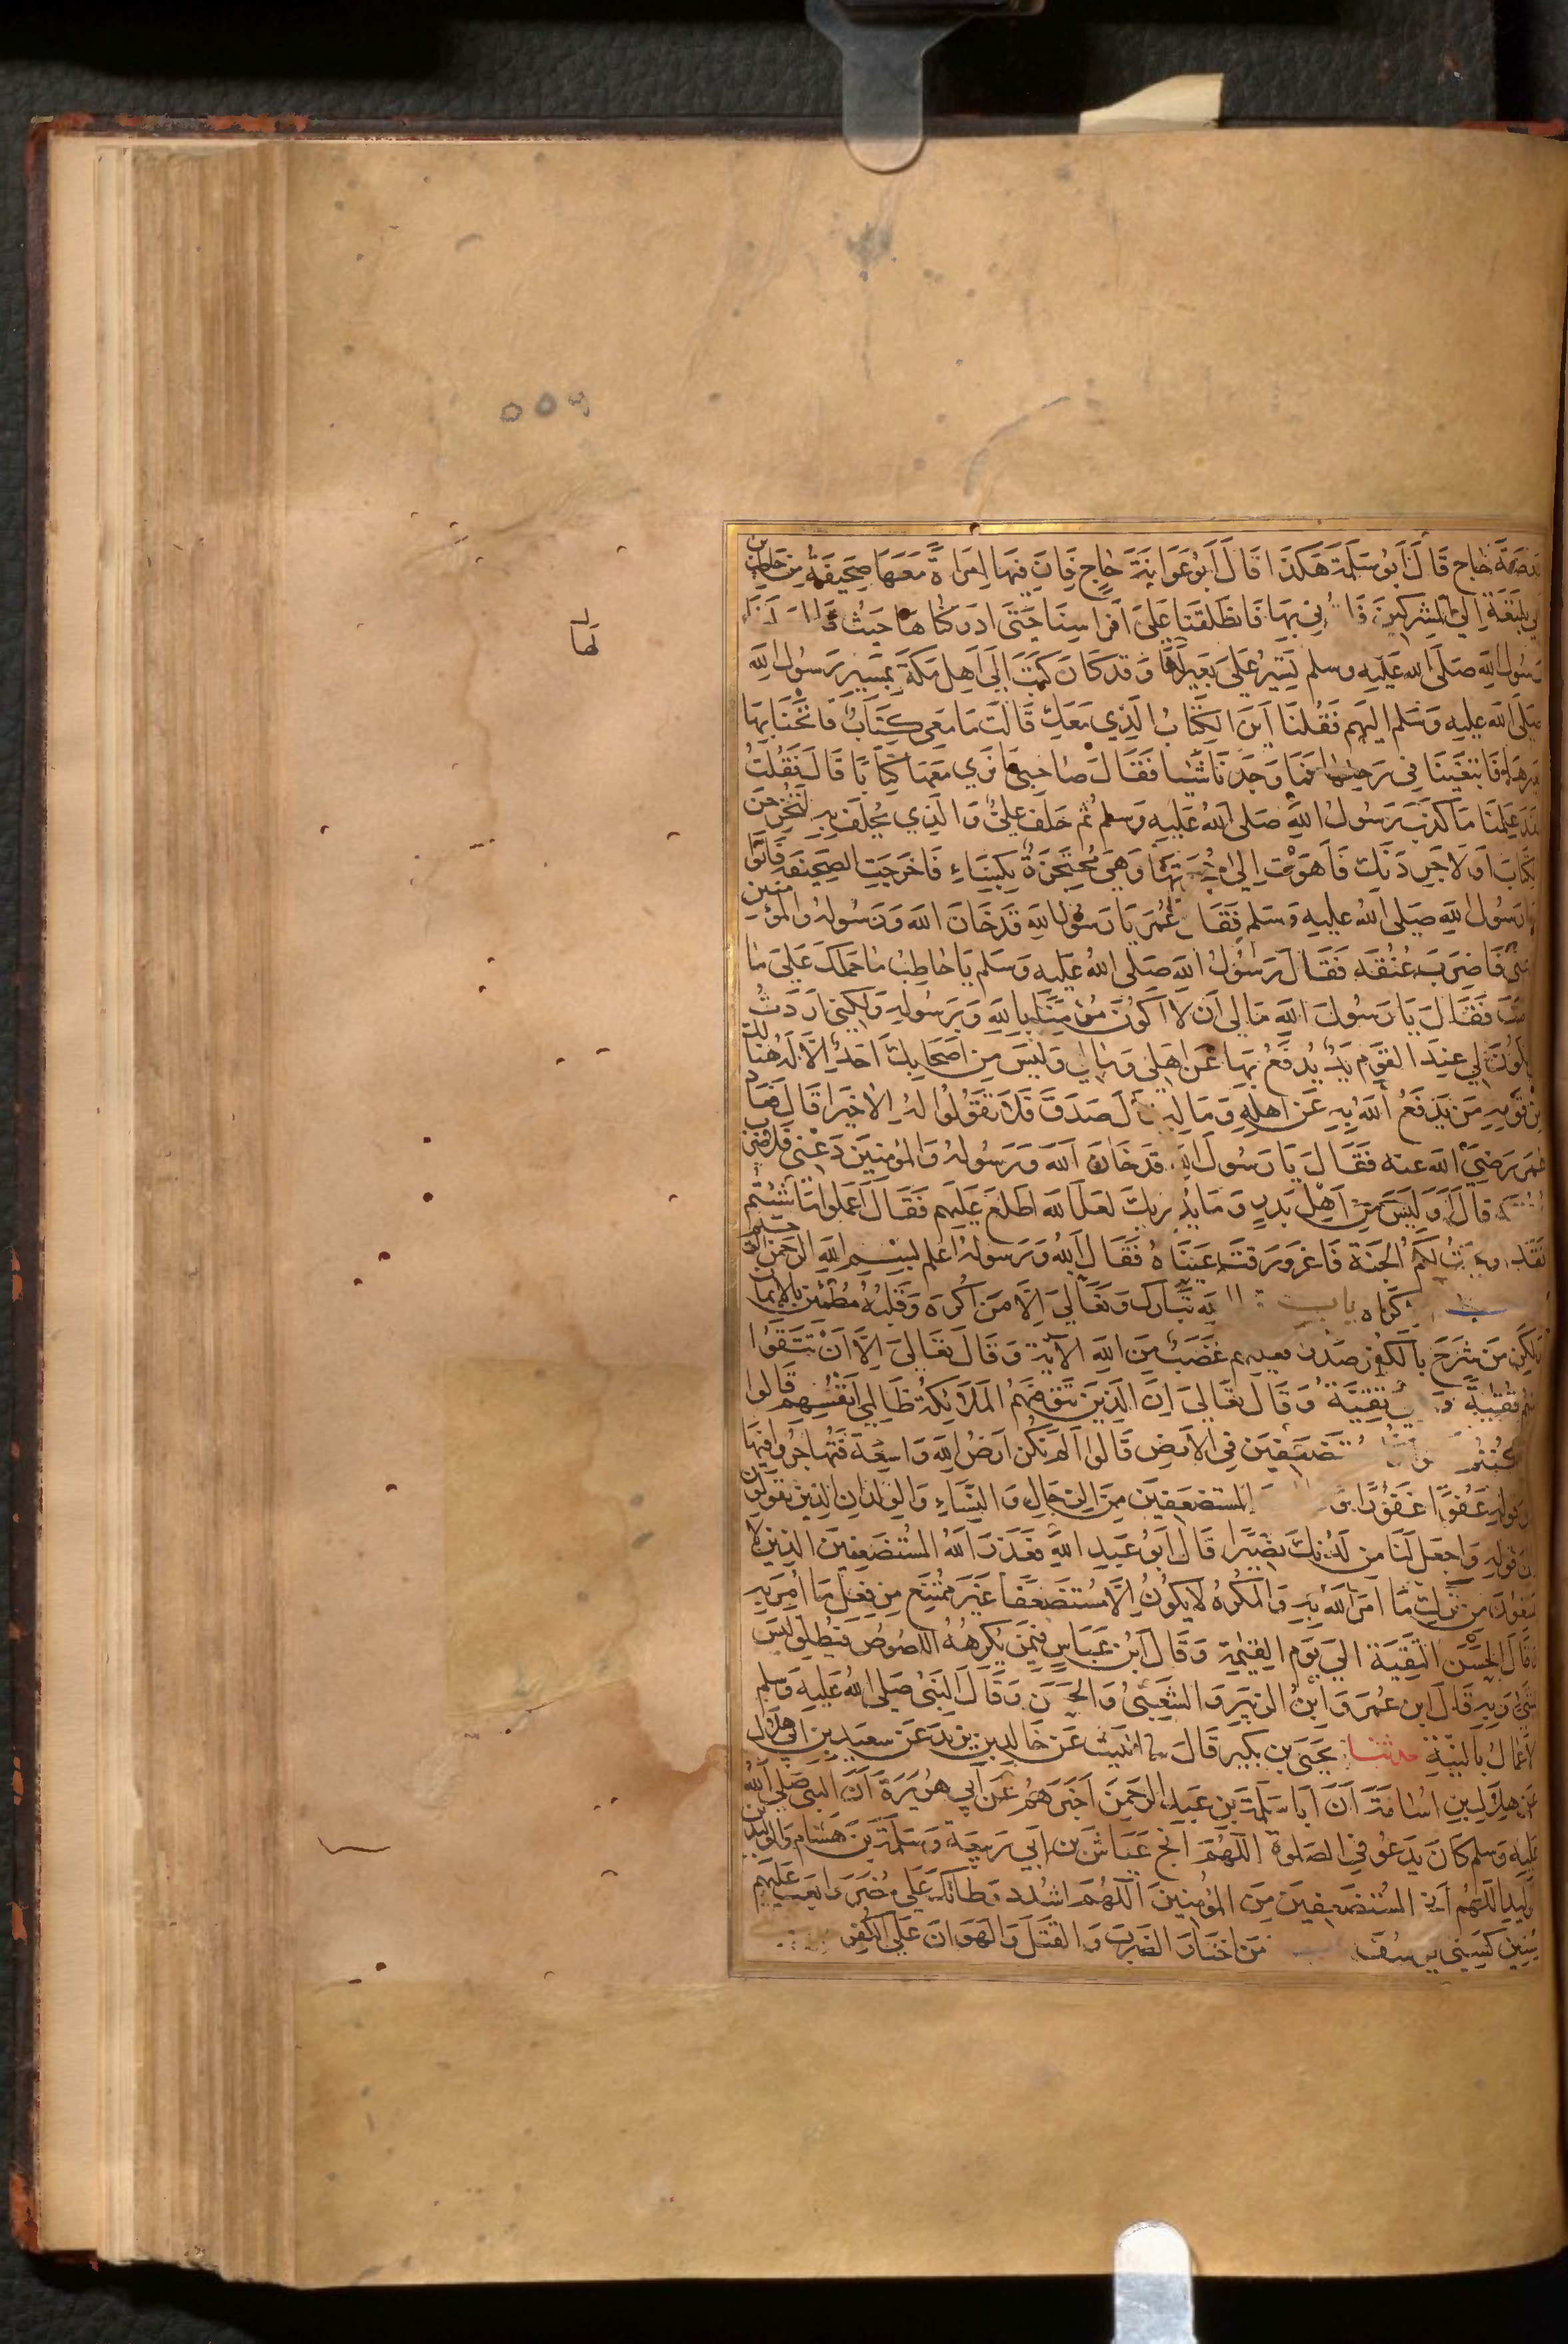 رَوضَةَ خَاجٍ قَالَ أَبُو سَلَمَةَ هَكَذَا قَالَ أَبُو عَوَانَةَ حَاجٍ فَإِنَّ فِيهَا امْرَأَةً مَعَهَا صَحِيفَةٌ مِنْ حَاطِبِ بن
أبي بَلتَعَةَ إِلَى المشْرِكِينَ فَأْتُونِي بِهَا فَانْطَلَقْنَا عَلَى أَفْرَاسِنَا حَتَّى أَدْرَكْنَاهَا حَيْثُ قَالَ لَنَا
لها
رَسُولُ اللهِ صَلَّى الله عَلَيْهِ وسلم تَسِيرُ عَلَى بَعِيرٍ وَقَدْ كَانَ كَتَبَ إِلَى أَهْلِ مَكَّةَ بِمَسِيرِ رَسُولِ اللهِ
صَلَّى الله عليه وَسَلم إليهم فَقُلْنَا أَيْنَ الكِتَابُ الَّذِي مَعَكِ قَالَتْ مَا مَعِي كِتَابٌ فَأَنَخْنَا بِهَا
بَعيرَهَا فَابْتَغَيْنَا فِي رَحْلِهَا فَمَا وَجَدْنَا شَيْئًا فَقَالَ صَاحِبِي مَا نَرَى مَعَهَا كِتَابًا قَالَ فَقُلْتُ
لَقَد عَلِمْنَا مَا كَذَبَ رَسُولُ اللهِ صَلى اللهُ عَلَيْهِ وَسلم ثُم حَلَفَ عَلِيٌّ وَالَّذِي يُحْلَفُ بِهِ لَتُخْرِجِنَّ
الكِتَابَ أَوْ لَأُجَرِّدَنَّكِ فَأَهْوَتْ إِلَى حُجْزَتِهَا وَهِيَ مُحْتَجِزَةٌ بِكِسَاءٍ فَأَخْرَجَتِ الصَحِيفَةَ فَأَتَوْا
بها رَسُولَ اللهِ صَلى اللهُ عليه وَسَلم فَقَالَ عُمَرُ يَا رَسُولَ اللهِ قَدْ خَانَ اللهَ وَرَسُولَهُ وَالمؤمنين
دعني فَأَضْرِبَ عُنُقَهُ فَقَالَ رَسُولُ اللهِ صَلَّى اللهُ عَلَيهِ وَسَلم يَا حَاطِبُ مَا حَمَلَكَ عَلَى مَا
صنعت فَقَالَ يَا رَسُولَ اللهِ مَا لِي أَنْ لَا أَكُونَ مُؤْمِنًا بِاللهِ وَبِرَسُولِهِ وَلَكِنِّي أَرَدْتُ
أن يكُونَ لِي عِنْدَ القَوْمِ يَدٌ يُدْفَعُ بِهَا عَنْ أَهْلِي وَمَالِي وَلَيْسَ مِنْ أَصْحَابِكَ أَحَدٌ إِلَّا لَهُ هُنَالِكَ
مِنْ قَوْمِهِ مَنْ يَدْفَعُ اللهُ بِهِ عَنْ أَهْلِهِ وَمَالِهِ قَالَ صَدَقَ فَلَا تَقُولُوا لَهُ إِلَّا خَيْرًا قَالَ فَعَادَ
عُمَرُ رَضِيَ الله عنه فَقَالَ يَا رَسُولَ اللهِ قَدْ خَانَ اللهَ وَرَسُولَهُ وَالمُؤمِنِينَ دَعْنِي فَلأضْرِبْ
عنقه قَالَ أَوَلَيْسَ مِنْ أَهْلِ بَدْرٍ وَمَا يُدْرِيكَ لَعَلَّ اللهَ اطَّلَعَ عَلَيْهِم فَقَالَ اعْمَلُوا مَا شِئْتُمْ
فَقَدْ أوجبت لَكُمُ الْجَنَّةَ فَاغْرَوْرَقَتْ عَيْنَاهُ فَقَالَ اللهُ وَرَسُولُهُ أَعْلَم بسْمِ اللهِ الرَّحْمَنِ الرحيم
كتاب الإكراه باب قول الله تَبَارَكَ وَتَعَالَى إِلَّا مَنْ أُكْرِهَ وَقَلْبُهُ مُطْمَئِنٌّ بِالإِيمَانِ
وَلَكِن مَنْ شَرَحَ بِالكُفْرِ صَدْرًا فعليهم غَضَبٌ مِنَ اللهِ الآيَةَ وَقَالَ تَعَالَى إِلَّا أَنْ تَتَّقُوا
منهُم تُقَيَّةً وهي تَقِيَّةٌ وَقَالَ تَعَالَى إِنَّ الَّذِينَ تَوَفَّاهُمُ المَلَائِكَةُ ظَالِمِي أَنْفُسِهِمْ قَالُوا
فيم كُنْتُمْ قالوا كنا مُسْتَضْعَفِينَ فِي الأَرْضِ قَالُوا أَلَمْ تَكُنْ أَرْضُ اللهِ وَاسِعَةً فَتُهَاجِرُوا فِيهَا
إلى قولِهِ عَفُوًّا غَفُورًا وَ المستضعَفِينَ مِنَ الرِّجَالِ وَالنِّسَاءِ وَالوِلْدَانِ الَّذِينَ يَقُولُونَ
إلى قَولِهِ وَاجْعَلْ لَنَا مِن لَدُنْكَ نَصِيرًا قَالَ أَبُو عَبْدِ اللهِ فَعَذَرَ اللهُ المُسْتَضْعَفِينَ الَّذِينَ لا
يمتنعُونَ مِنْ تَرْكِ مَا أَمَرَ اللهُ بِهِ وَالمُكْرَهُ لَا يَكُونُ إِلَّا مُسْتَضْعَفًا غَيْرَ مُمْتَنِعٍ مِن فِعْلِ مَا أُمِرَ بِهِ
وَقَالَ الحَسَنُ التَّقِيَّةُ إِلَى يَوْمِ القِيمَةِ وَقَالَ ابْنُ عَبَّاسٍ فِيمَنْ يُكْرِهُهُ اللصُوصُ فَيُطَلِّقُ لَيْسَ
بشيءٍ وَبِهِ قَالَ ابن عُمَرَ وَابْنُ الزُّبَيْرِ وَالشَّعْبِيُّ وَالحَسَنُ وَقَالَ النَّبِيُّ صَلى اللهُ عَلَيْهِ وَسلم
الأَعْمَالُ بِالنِّيَّةِ حدثنا يَحْيَى بن بُكَيْرٍ قَالَ ثنا اللَّيْثُ عَنْ خَالِدِ بن يَزِيدَ عَنْ سَعِيدِ بن أبي هِلَالٍ
عَنْ هِلَالِ بن أُسَامَةَ أَنَّ أَبَا سَلَمَةَ بن عَبْدِ الرَّحْمَنِ أَخْبَرَهُمْ عَن أَبِي هُرَيْرَةَ أَنَّ النَّبِيَّ صَلى اللهُ
عَلَيهِ وَسلم كَانَ يَدْعُو فِي الصَّلوةِ اللَّهُمَّ أَنْجِ عَيَّاشَ بن أَبِي رَبِيعَةَ وَسَلَمَةَ بْنَ هِشَامٍ وَالوليد بن
الوليد اللَّهُمَّ أَنْجِ المُسْتَضْعَفِينَ مِنَ المُؤْمِنِينَ اللَّهُمَّ اشْدُدْ وَطْأَتَكَ عَلَى مُضَرَ وَابْعَثْ عَلَيْهِم
سِنِينَ كَسِنِي يوسُفَ باب مَنِ اخْتَارَ الضَّرْبَ وَالقَتْلَ وَالهَوَانَ عَلَى الكُفْرِ